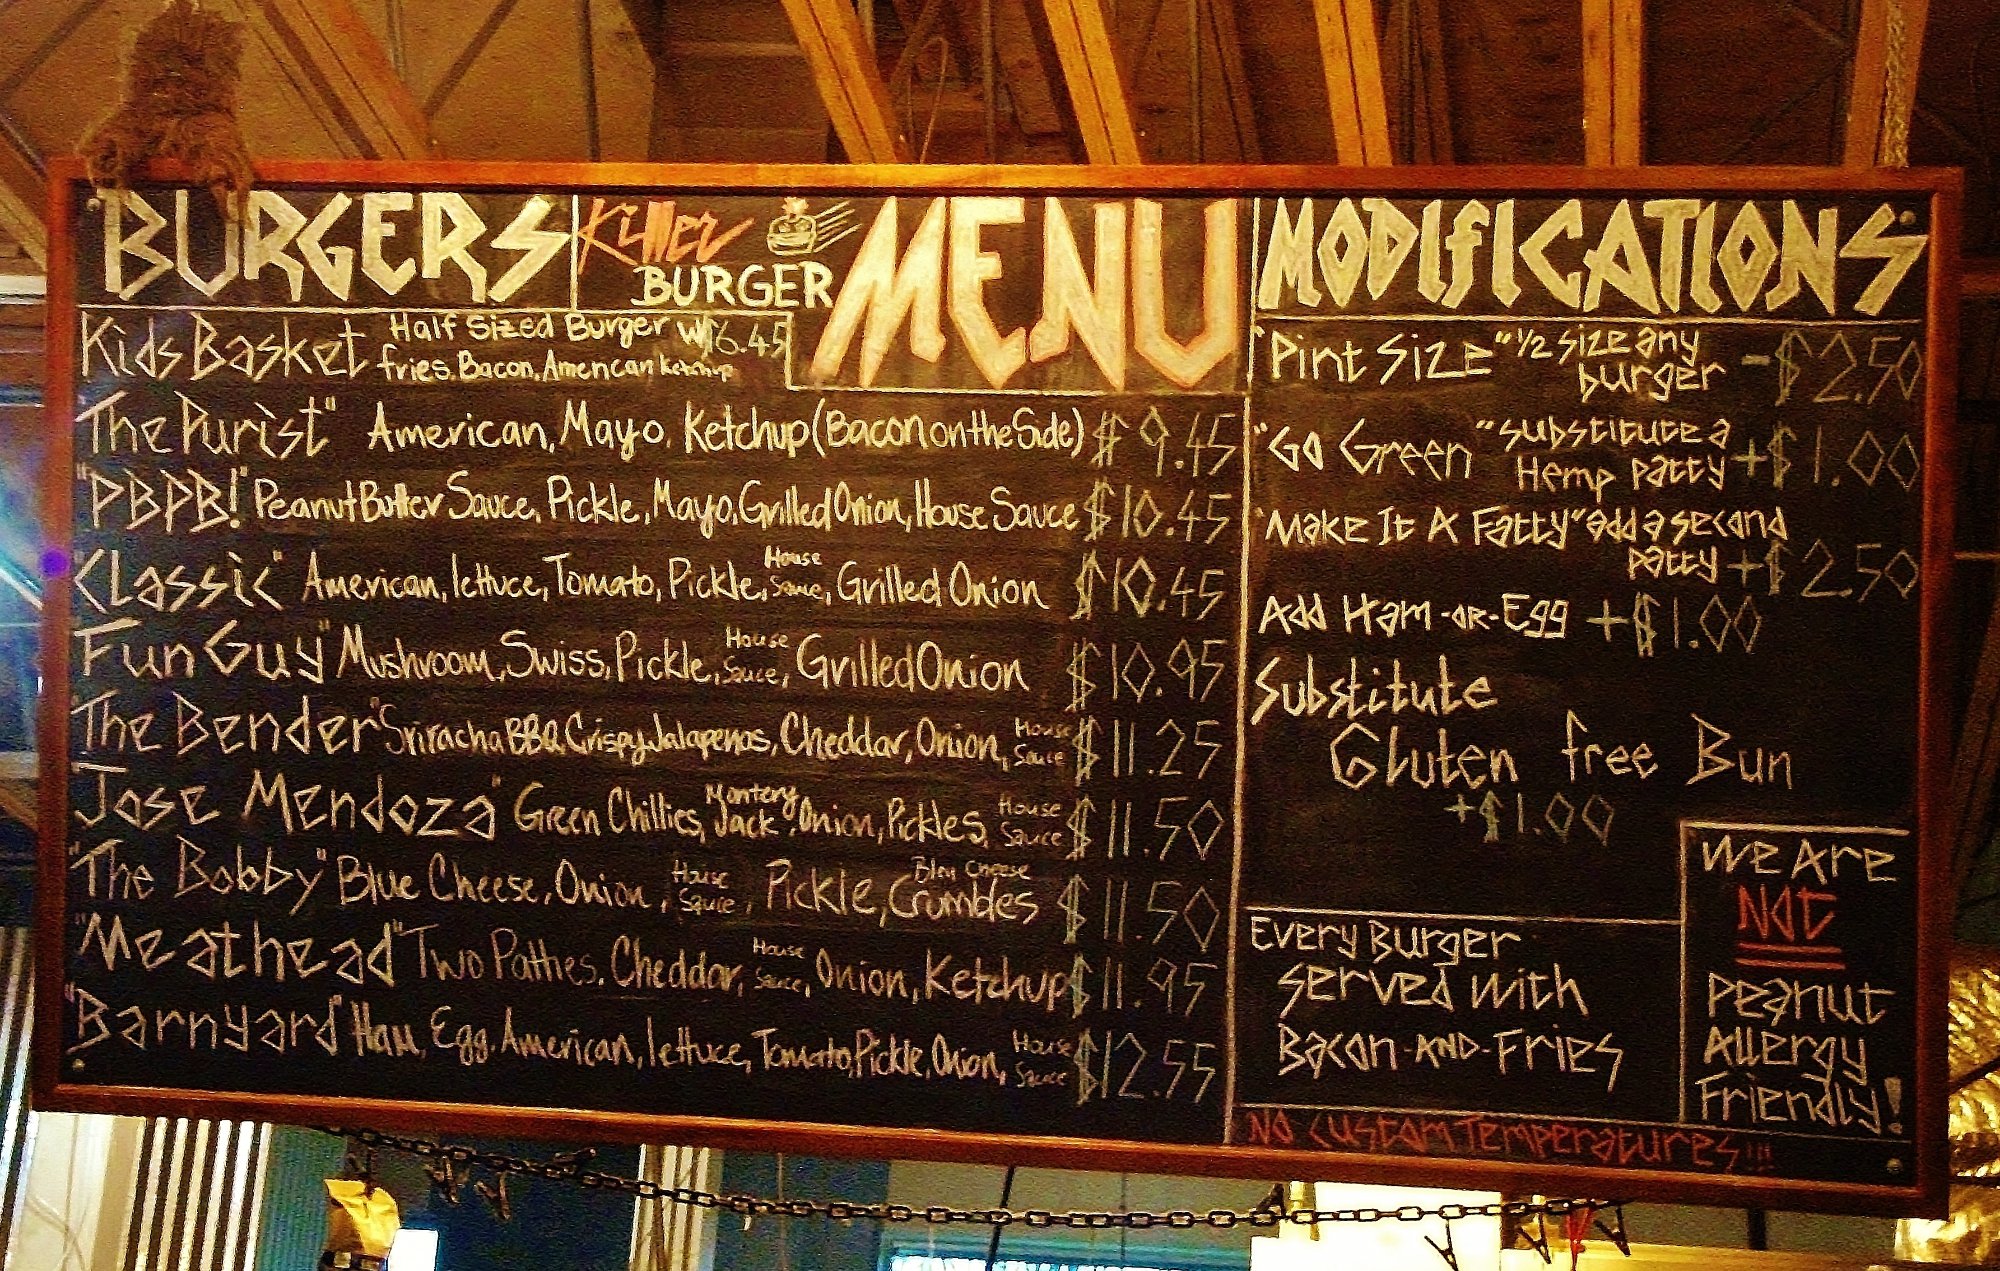 BURGERS
Killer
BURGER
MENU
Kids Basket Half Sized Burger w/ $6.45
fries. Bacon, American Ketchup
"The Purist" American, Mayo, Ketchup (Bacon on the Side) $9.45
"PBPB!" Peanut Butter Sauce, Pickle, Mayo, Grilled Onion, House Sauce $10.45
"Classic" American, lettuce, Tomato, Pickle, House Sauce, Grilled Onion $10.45
Fun Guy" Mushroom, Swiss, Pickle, House Sauce, Grilled Onion $10.95
"The Bender" Sriracha BBQ, Crispy Jalapenos, Cheddar, Onion, House Sauce $11.25
"Jose Mendoza" Green Chillies, Montery Jack, Onion, Pickles, House Sauce $11.50
"The Bobby" Blue Cheese, Onion, House Sauce, Pickle, Bleu Cheese Crumbles $11.50
"Meathead" Two Patties, Cheddar, House Sauce, Onion, Ketchup $11.95
"Barnyard" Ham, Egg, American, lettuce, Tomato, Pickle, Onion, House Sauce $12.55
MODIfICATIONS
"Pint Size" 1/2 size any
burger -$2.50
"Go Green" substitute a
Hemp patty +$1.00
"Make It A Fatty" add a second
patty +$2.50
Add Ham-or-Egg +$1.00
Substitute
Gluten free Bun
+$1.00
Every Burger
served with
Bacon-AND-Fries
We Are
NOT
Peanut
Allergy
Friendly!
No Custom Temperatures!!!